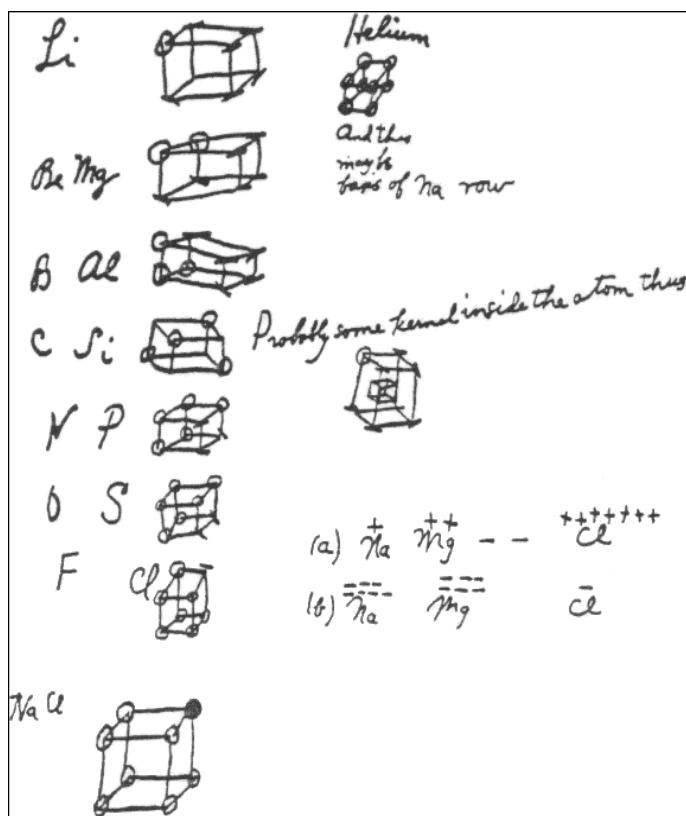 Li
Helium
And this
may be
basis of Na row
Be Mg
B Al
C Si
Probably some kernel inside the atom thus
N P
O S
F Cl
(a) Na Mg - - Cl
+ ++ +++++++
(b) Na Mg Cl
Na Cl